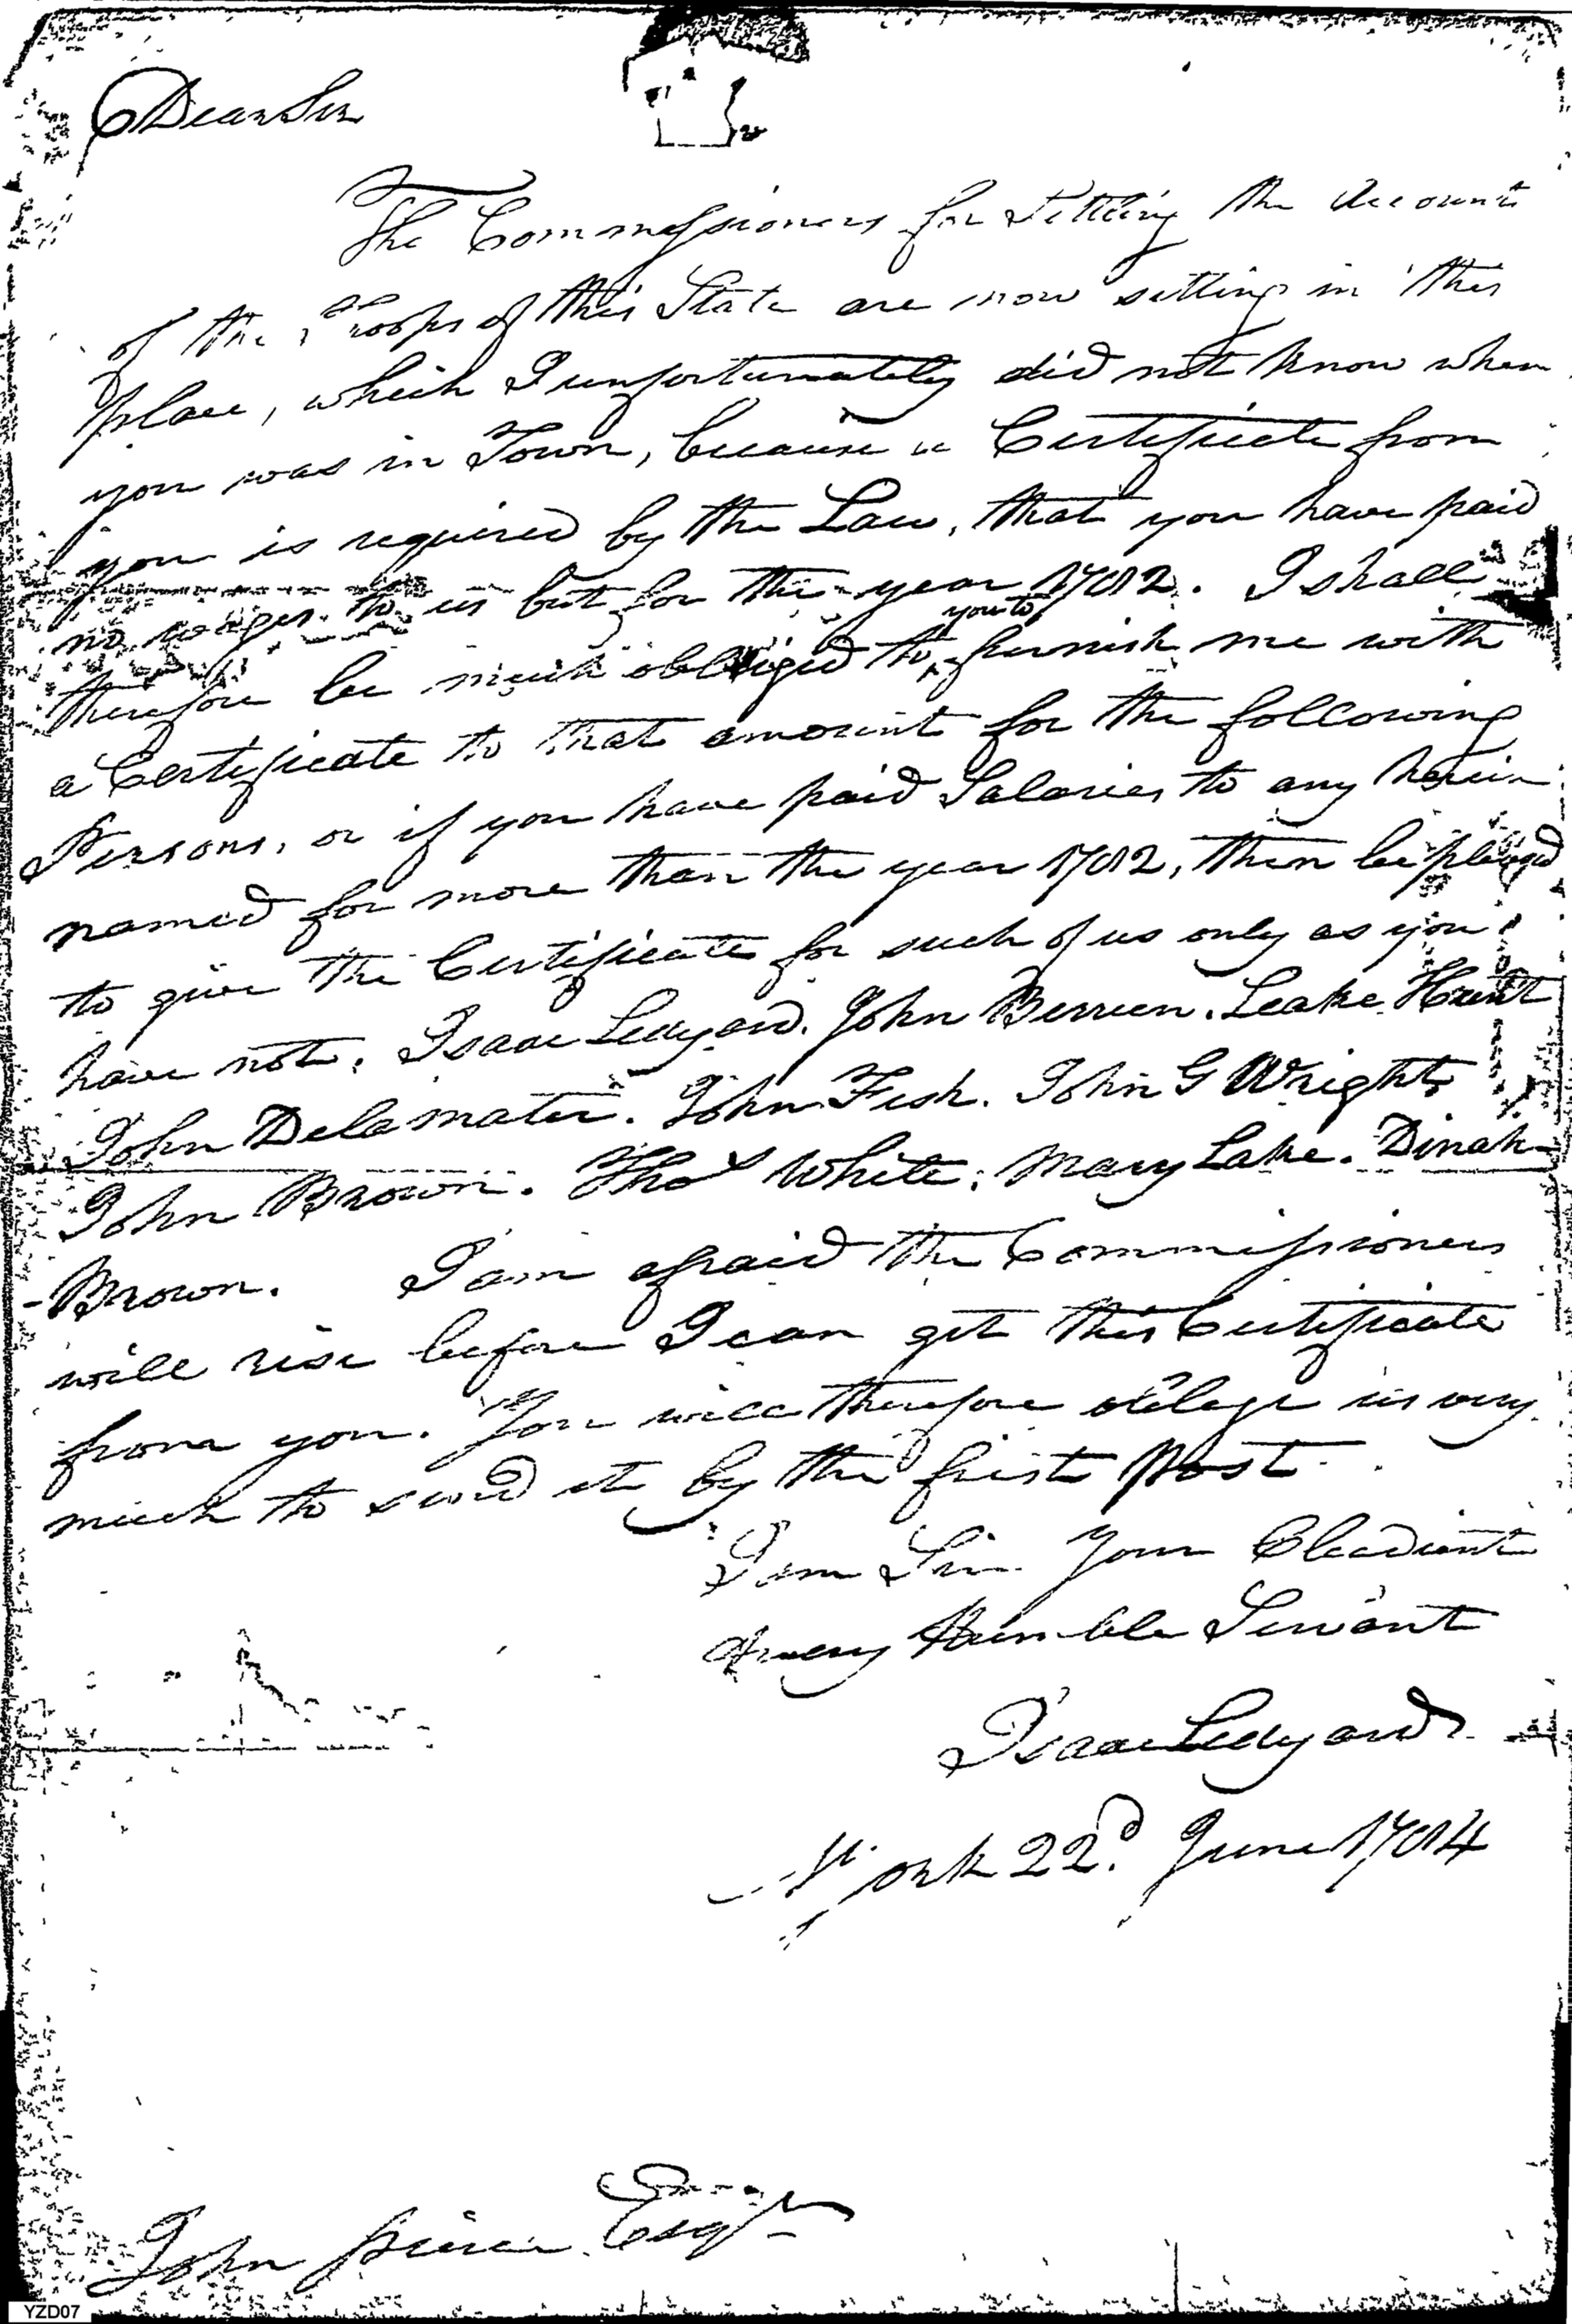 Dear Sir
The Commissioners for Settling the Accounts
of the Troops of this State are now sitting in this
place, which I unfortunately did not know when
you was in Town, because a Certificate from
you is required by the Law, that you have paid
no wages to us but for the year 1782. I shall
you to
therefore be much obliged to furnish me with
a Certificate to that amount for the following
Persons, or if you have paid Salaries to any herein
named for more than the year 1782, then be pleased
to give the Certificate for such of us only as you
have not. Isaac Ledyard. John Berrien. Leake Hunt
John Delamater. John Fish. John G Wright
John Brown. Thos White. Mary Lake. Dinah
Brown. I am afraid the Commissioners
will rise before I can get this Certificate
from you. You will therefore oblige us very
much to send it by the first Post.
I am Sir Your Obedient
& very Humble Servant
Isaac Ledyard
N York 22d. June 1784
John Pierce Esqr
YZD07